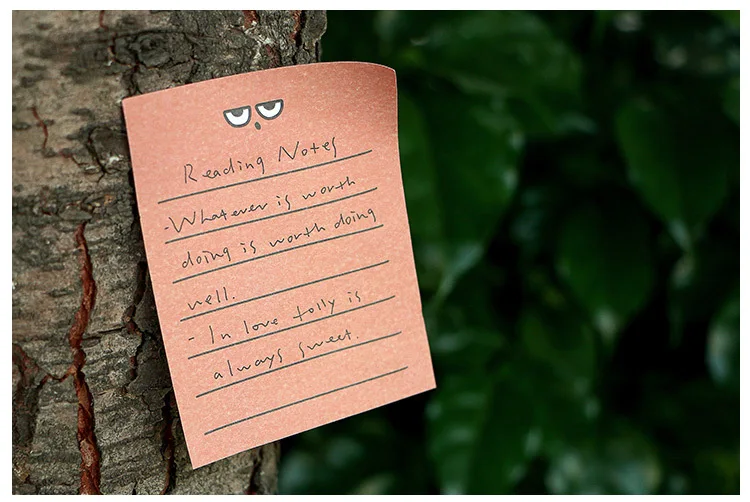 Reading Notes
-Whatever is worth
doing is worth doing
well.
- In love folly is
always sweet.